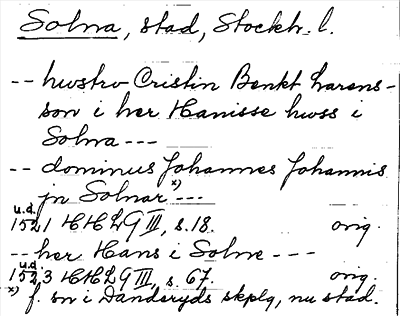 Solna, stad, Stockh. l.
-- hwstrv Cristin Benkt Larens-
son i her Hanisse hwss i
Solna ---
-- dominus Johannes Johannis
jn Solnar x) ---
u.d.
1521 HH Z 9 III, s. 18. orig.
-- her Hans i Solne ---
u.d.
1523 HH Z 9 III, s. 67. orig.
x) f. sn i Danderyds skplg, nu stad.